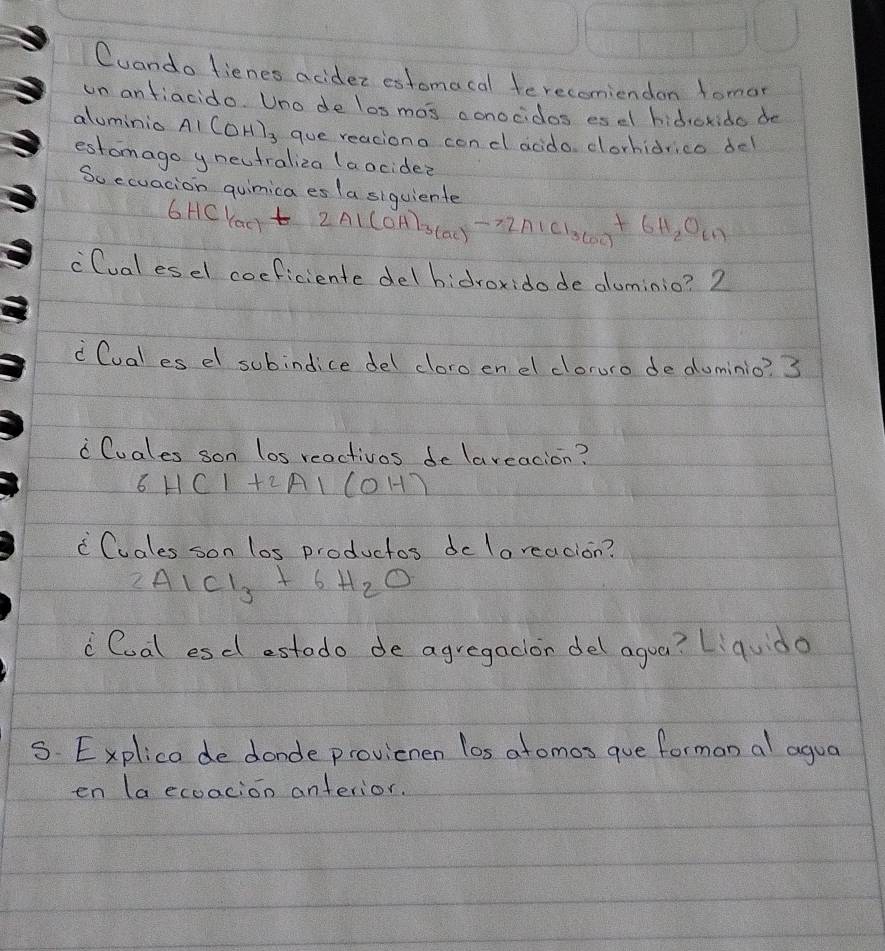 Cuando tienes acidez estomacal te recomiendan tomar
un antiacido. Uno de los mas conocidos es el hidroxido de
aluminio Al(OH)₃ que reaciona con el acido clorhidrico del
estomago y neutraliza la acidez
Su ecuacion quimica es la siguiente
6HCl(ac) + 2Al(OH)₃(ac) -> 2AlCl₃(ac) + 6H₂O(l)
¿Cual es el coeficiente del hidroxido de aluminio? 2
¿Cual es el subindice del cloro en el cloruro de aluminio? 3
¿Cuales son los reactivos de la reacion?
6HCl + 2Al(OH)
¿Cuales son los productos de la reación?
2AlCl₃ + 6H₂O
¿Cuál es el estado de agregación del agua? Liquido
5. Explica de donde provienen los atomos que forman al agua
en la ecuación anterior.